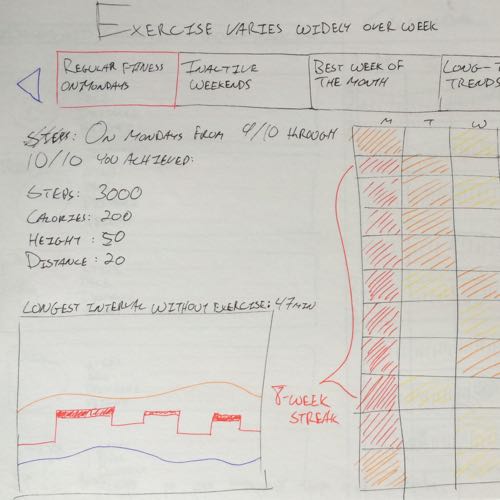 EXERCISE VARIES WIDELY OVER WEEK
REGULAR FITNESS
ON MONDAYS
INACTIVE
WEEKENDS
BEST WEEK OF
THE MONTH
LONG-T
TRENDS
STEPS: ON MONDAYS FROM 4/10 THROUGH
10/10 YOU ACHIEVED:
STEPS: 3000
CALORIES: 200
HEIGHT: 50
DISTANCE: 20
LONGEST INTERVAL WITHOUT EXERCISE: 47 MIN
M T W
8-WEEK
STREAK